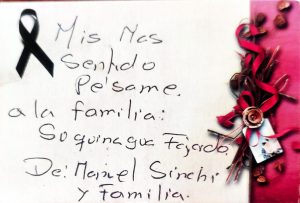 Mis Mas
Sentido
Pésame.
a la familia:
Soquinagua Fajardo.
De: Manuel Sinchi
y Familia.